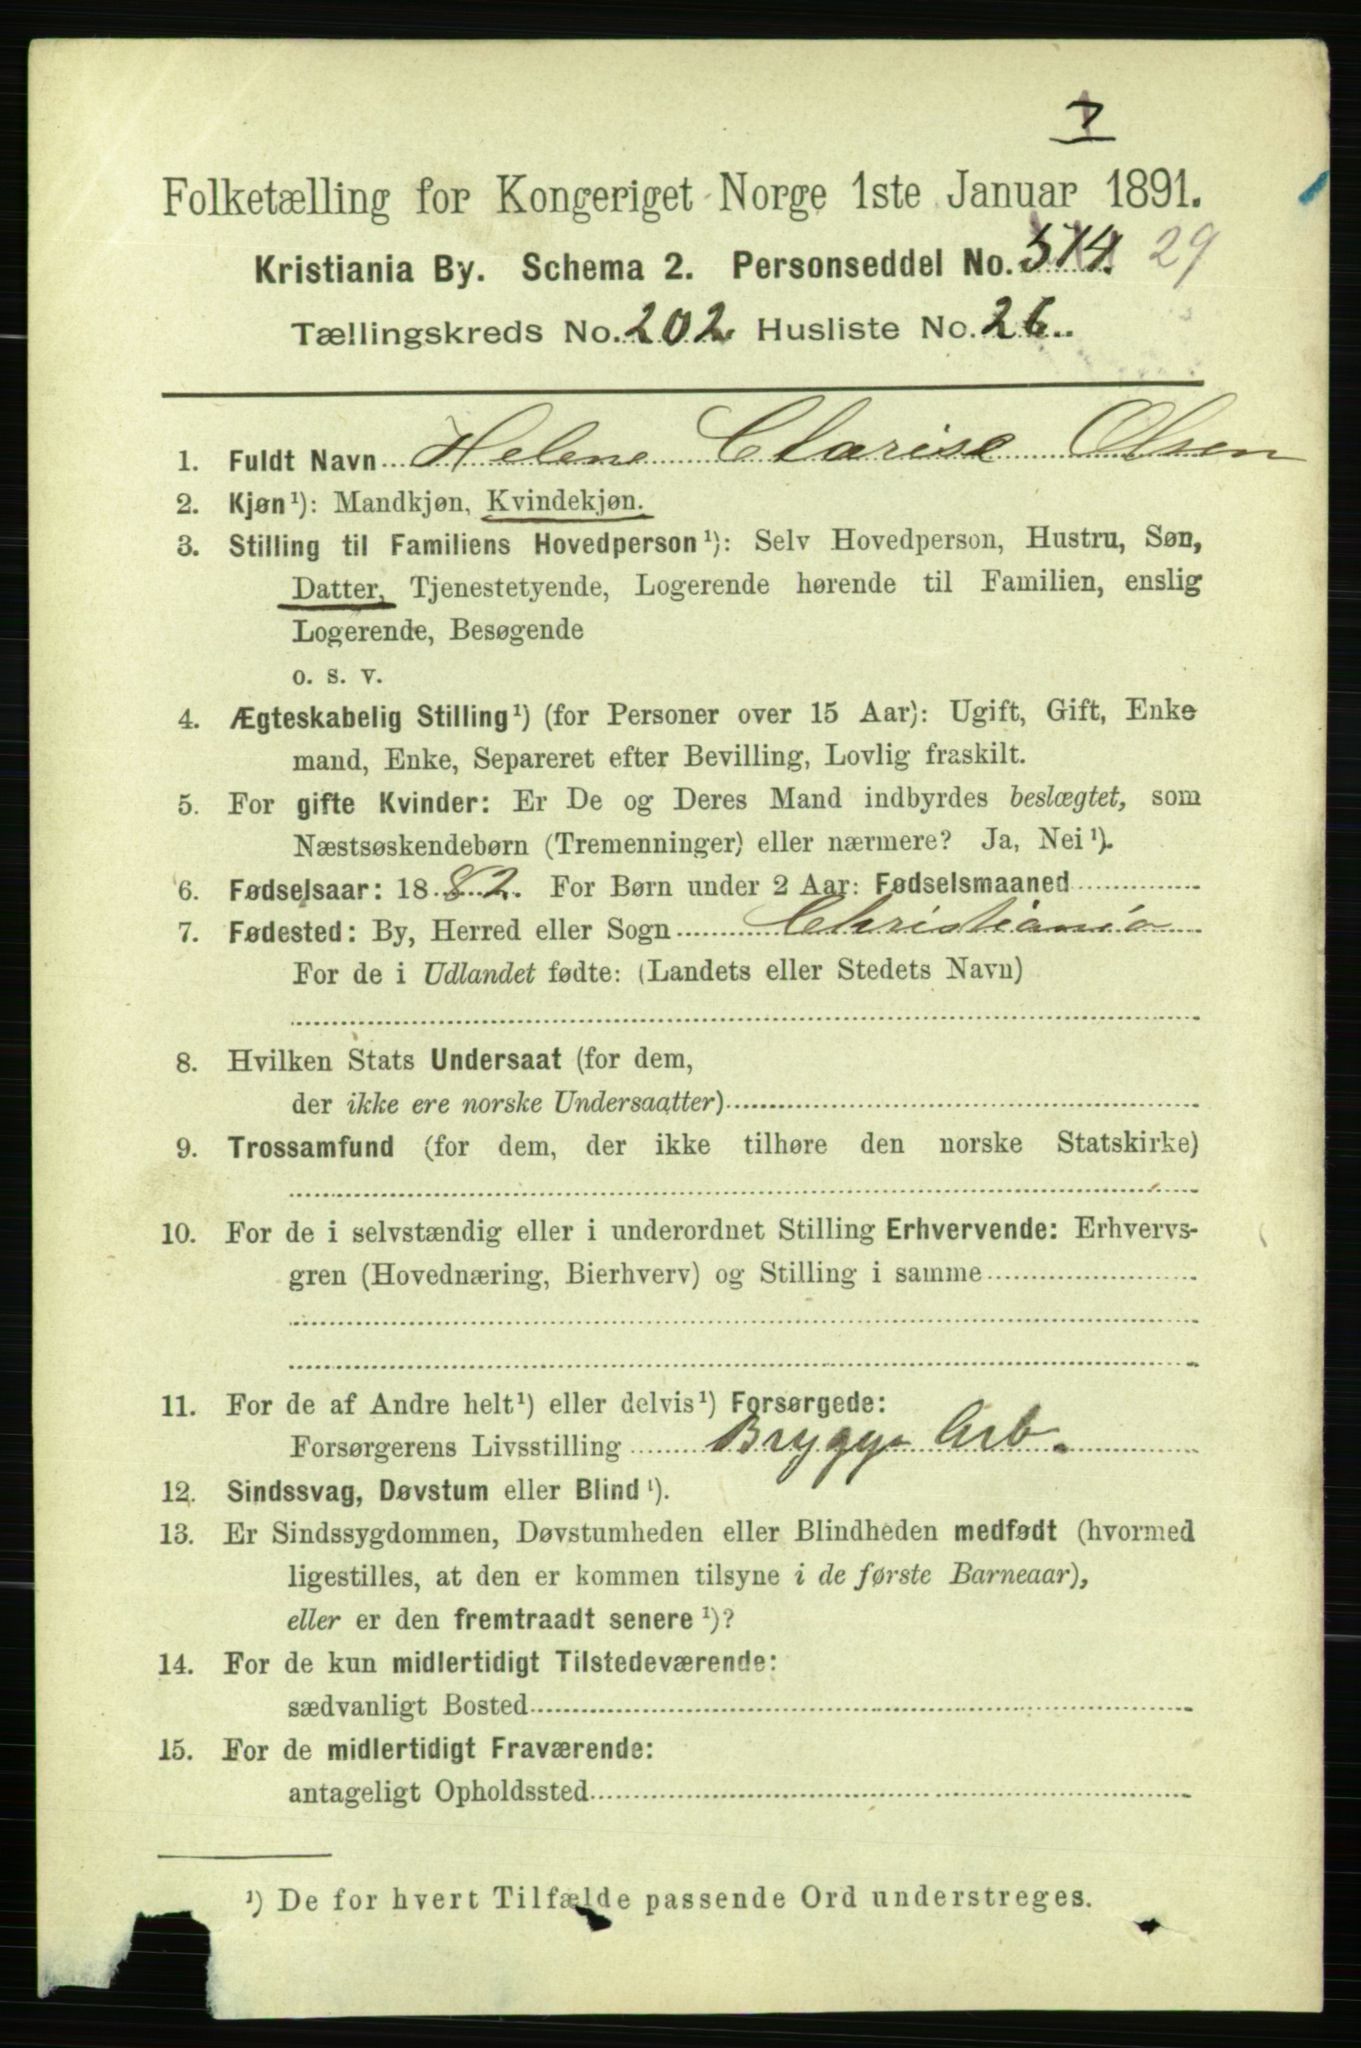 7
Folketælling for Kongeriget Norge 1ste Januar 1891.
Kristiania By. Schema 2. Personseddel No. 574. 29
Tællingskreds No. 202 Husliste No. 26
1. Fuldt Navn Helene Clarise Olsen
2. Kjøn¹): Mandkjøn, Kvindekjøn.
3. Stilling til Familiens Hovedperson¹): Selv Hovedperson, Hustru, Søn,
Datter, Tjenestetyende, Logerende hørende til Familien, enslig
Logerende, Besøgende
o. s. v.
4. Ægteskabelig Stilling¹) (for Personer over 15 Aar): Ugift, Gift, Enke
mand, Enke, Separeret efter Bevilling, Lovlig fraskilt.
5. For gifte Kvinder: Er De og Deres Mand indbyrdes beslægtet, som
Næstsøskendebørn (Tremenninger) eller nærmere? Ja, Nei¹).
6. Fødselsaar: 1882. For Børn under 2 Aar: Fødselsmaaned
7. Fødested: By, Herred eller Sogn Christiania
For de i Udlandet fødte: (Landets eller Stedets Navn)
8. Hvilken Stats Undersaat (for dem,
der ikke ere norske Undersaatter)
9. Trossamfund (for dem, der ikke tilhøre den norske Statskirke)
10. For de i selvstændig eller i underordnet Stilling Erhvervende: Erhvervs-
gren (Hovednæring, Bierhverv) og Stilling i samme
11. For de af Andre helt¹) eller delvis¹) Forsørgede:
Forsørgerens Livsstilling Brygge Arb.
12. Sindssvag, Døvstum eller Blind¹).
13. Er Sindssygdommen, Døvstumheden eller Blindheden medfødt (hvormed
ligestilles, at den er kommen tilsyne i de første Barneaar),
eller er den fremtraadt senere¹)?
14. For de kun midlertidigt Tilstedeværende:
sædvanligt Bosted
15. For de midlertidigt Fraværende:
antageligt Opholdssted
¹) De for hvert Tilfælde passende Ord understreges.